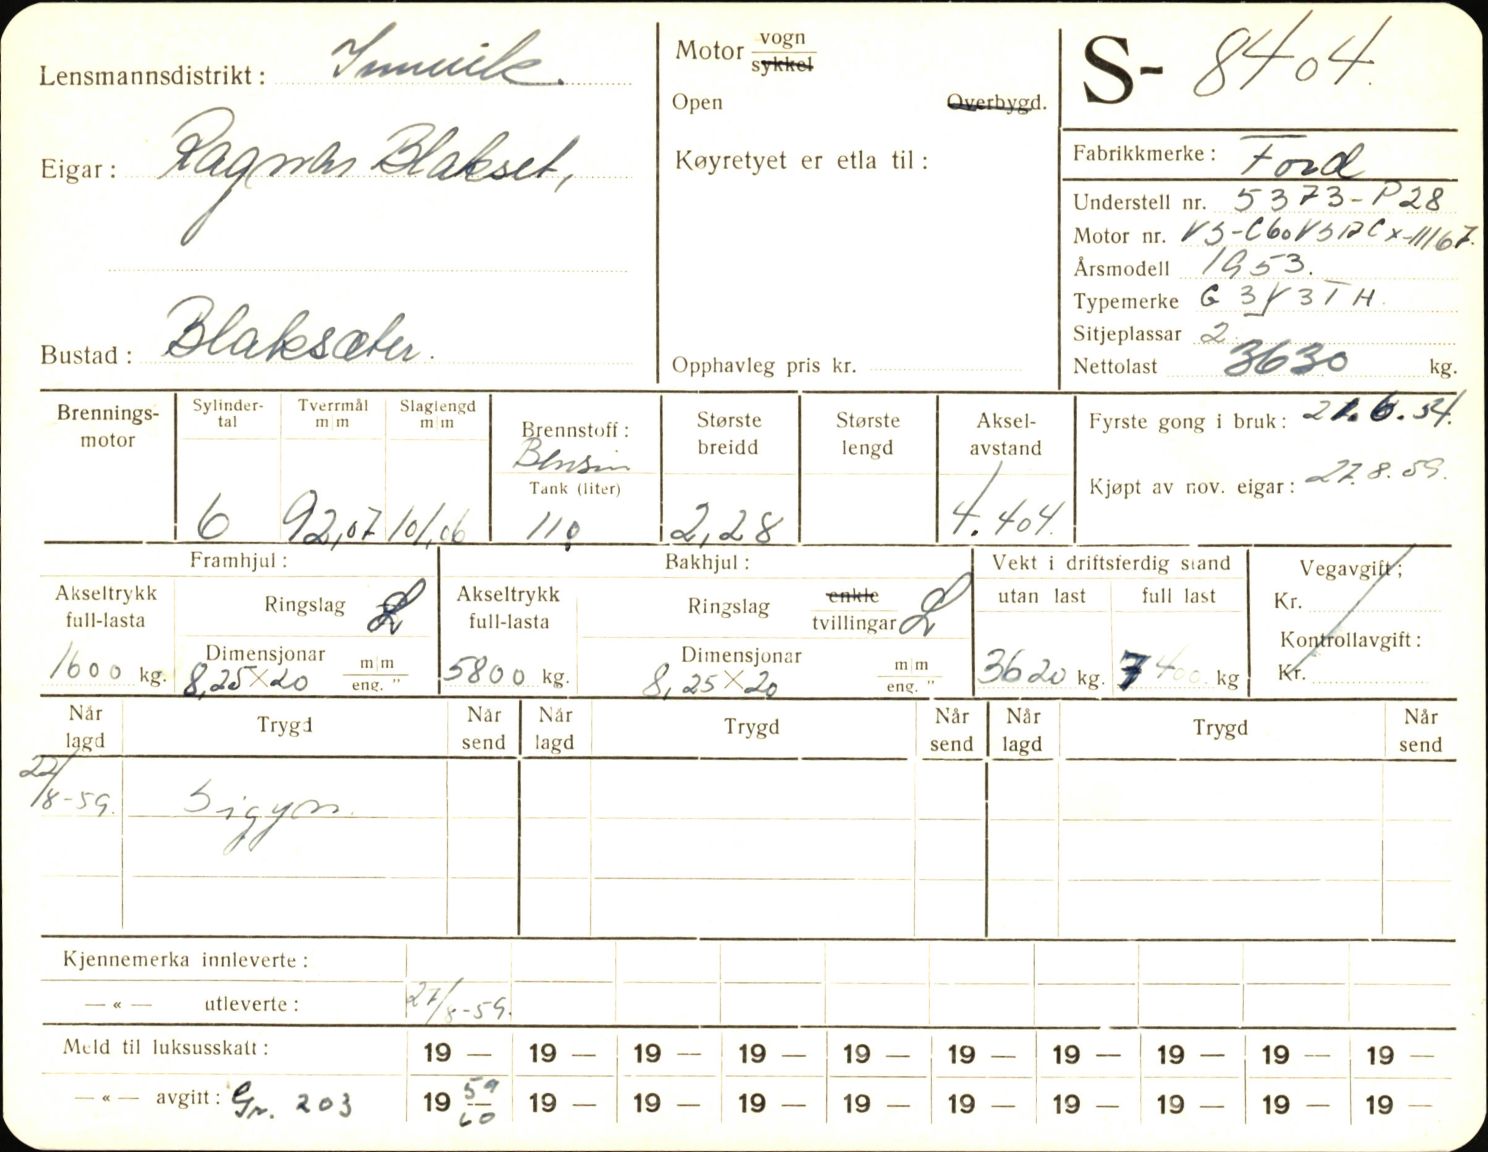 Lensmannsdistrikt: Innvik.
Eigar: Ragnar Blakset,
Bustad: Blaksæter.
Motor vogn
sykkel
Open Overbygd.
Køyretyet er etla til:
Opphavleg pris kr.
S- 8404.
Fabrikkmerke: Ford
Understell nr. 5373-P28
Motor nr.
Årsmodell 1953.
Typemerke
Sitjeplassar 2
Nettolast 3630 kg.
Brennings-
motor
Sylinder-
tal
6
Tverrmål
m|m
92,07
Slaglengd
m|m
101,06
Brennstoff:
Bensin
Tank (liter)
110
Største
breidd
2,28
Største
lengd
Aksel-
avstand
4.404.
Fyrste gong i bruk: 21.6.54.
Kjøpt av nov. eigar: 27.8.59.
Framhjul:
Akseltrykk
full-lasta
1600 kg.
Ringslag L
Dimensjonar
8,25×20
m|m
eng. "
Bakhjul:
Akseltrykk
full-lasta
5800 kg.
Ringslag
enkle
tvillingar L
Dimensjonar
8,25×20
m|m
eng. "
Vekt i driftsferdig stand
utan last
3620 kg.
full last
7400 kg
Vegavgift;
Kr.
Kontrollavgift:
Kr.
Når
lagd
Trygd
Når
send
Når
lagd
Trygd
Når
send
Når
lagd
Trygd
Når
send
22/8-59. Sigyn.
Kjennemerka innleverte:
— « — utleverte: 27/8-59.
Meld til luksusskatt: 19 — 19 — 19 — 19 — 19 — 19 — 19 — 19 — 19 — 19 —
— « — avgift: Gr. 203 19 59/60 19 — 19 — 19 — 19 — 19 — 19 — 19 — 19 — 19 —